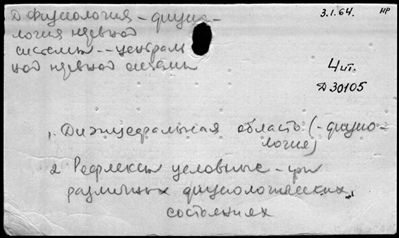 Д Физиология - физио-
логия нервной
системы -- централь
ной нервной системы
3.1.64. НР
4 чт.
Д 30105
1. Диэнцефальная область (- физио-
логия)
2 Рефлексы условные - при
различных физиологических
состояниях